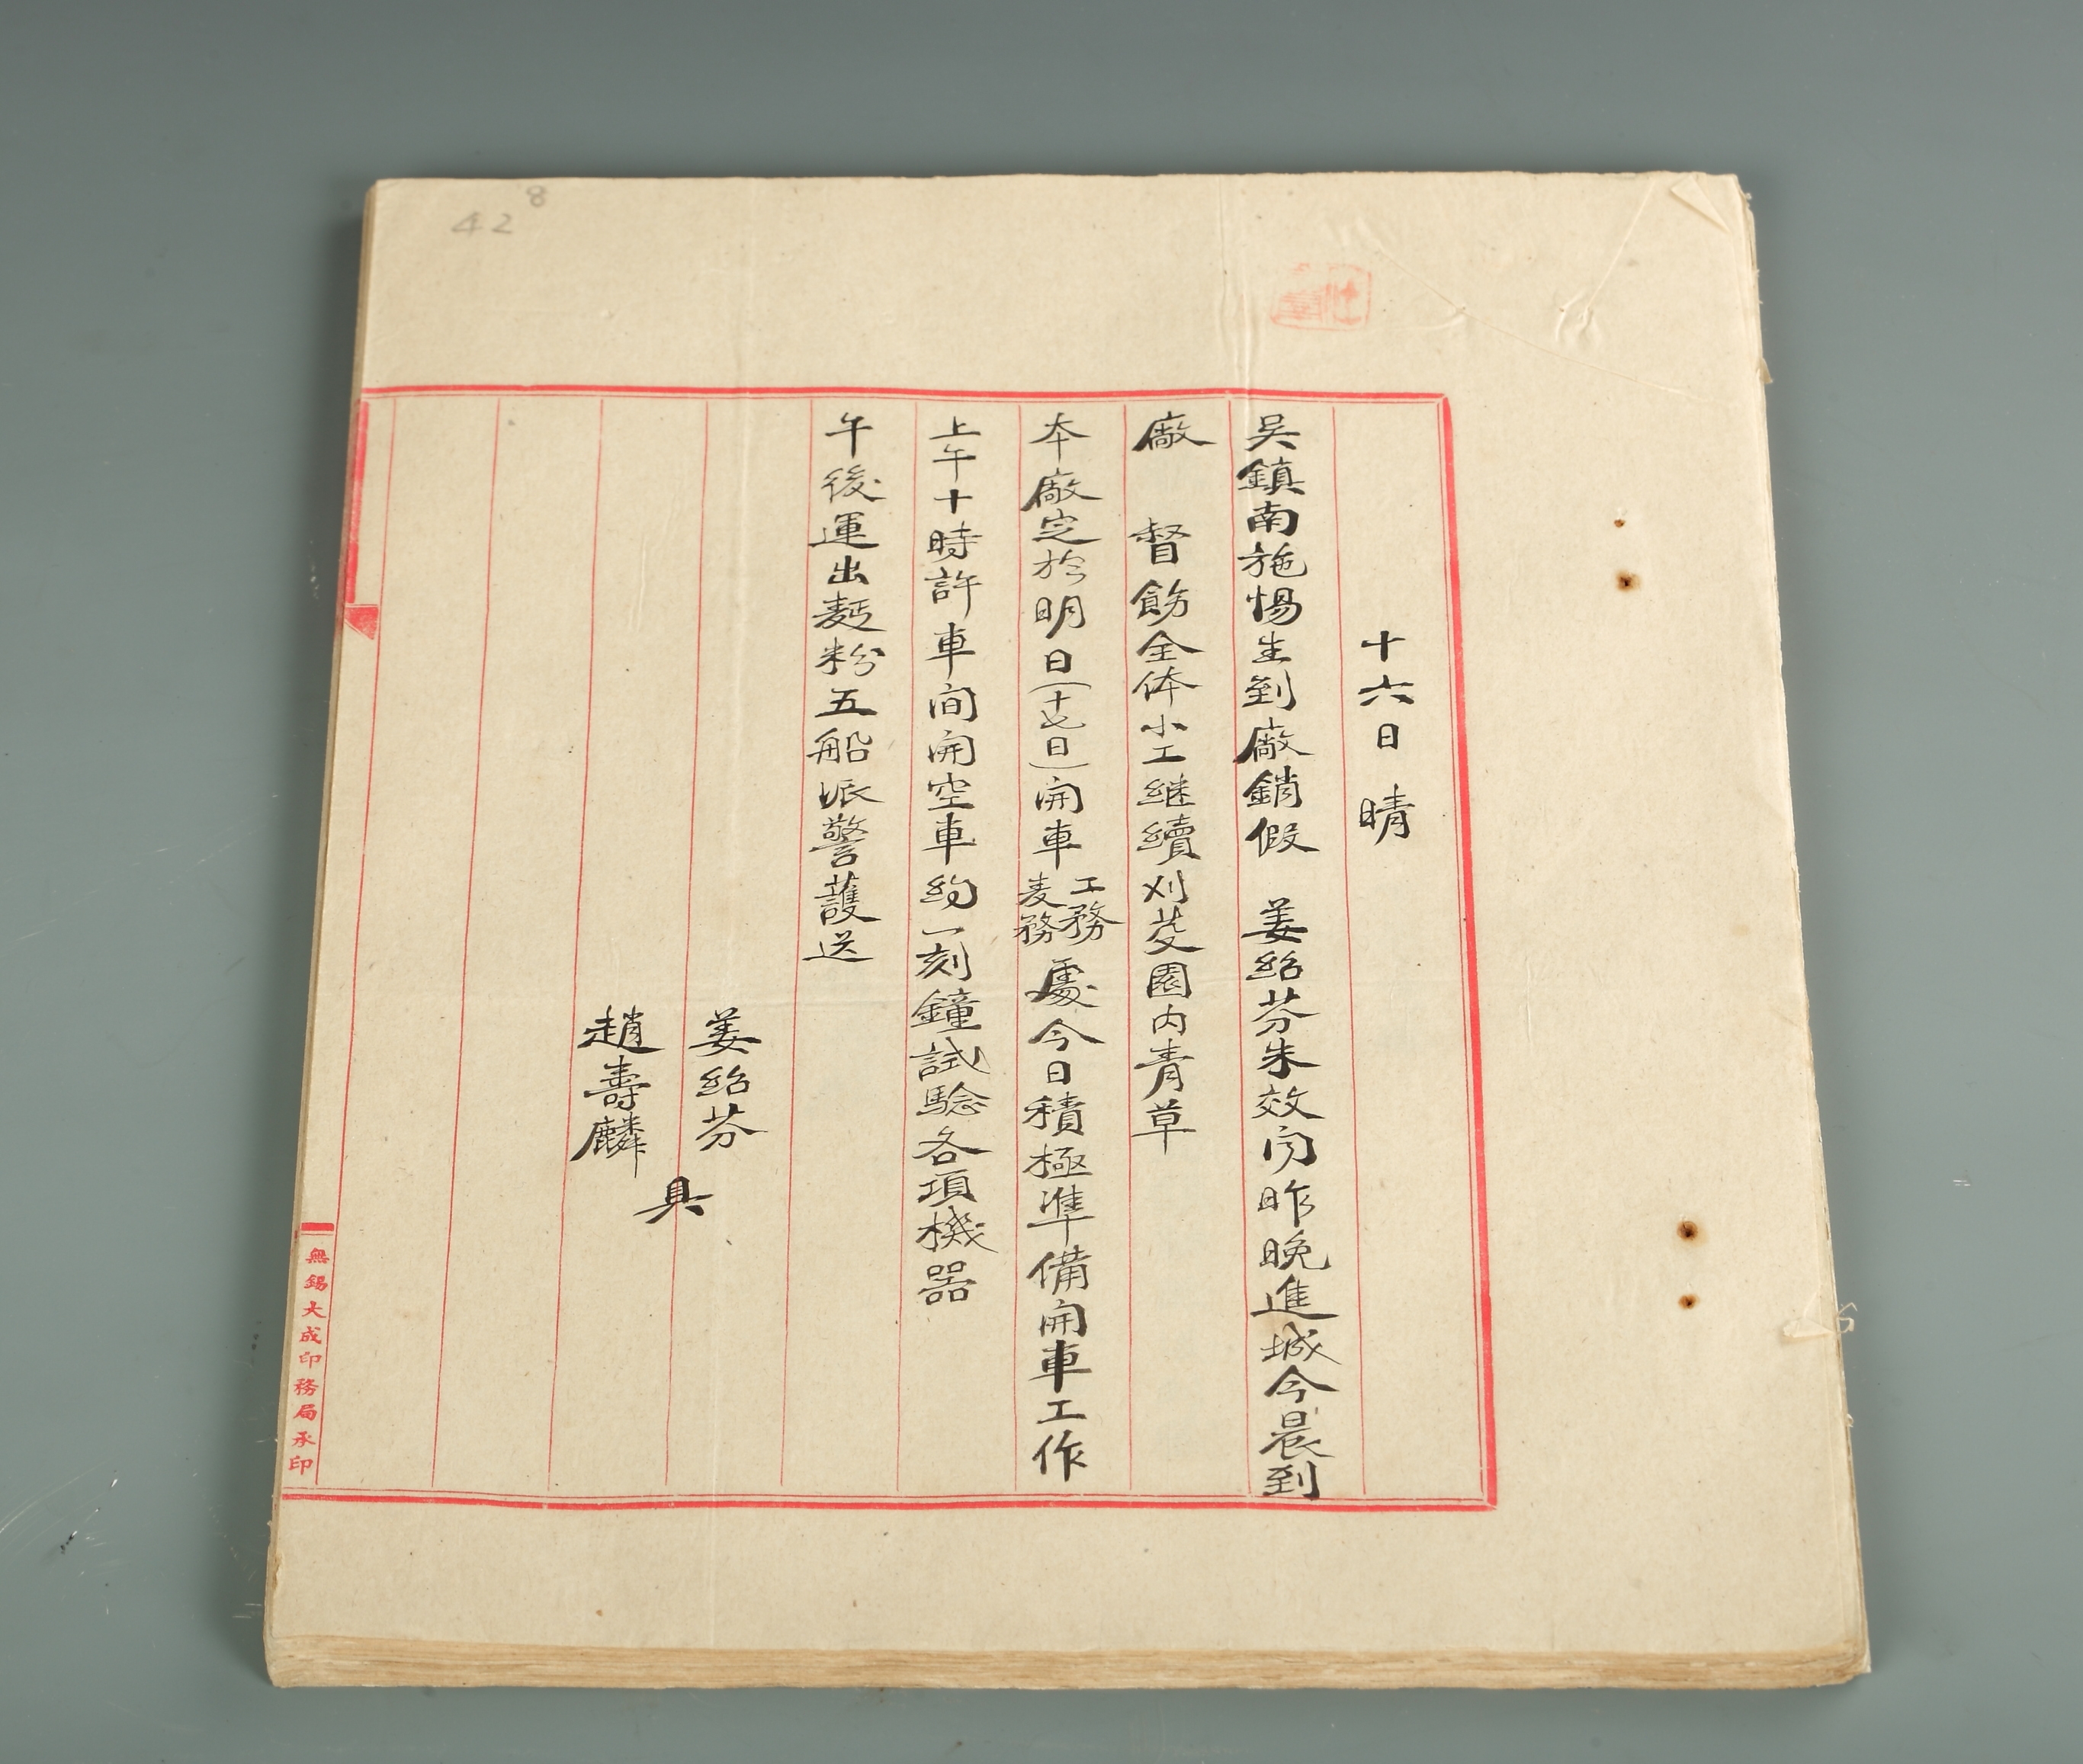 十六日 晴
吴鎮南施惕生到廠銷假 姜紹芬朱效向昨晚進城今晨到
廠 督飭全体小工继續刈芟園内青草
本廠定於明日(十七日)開車工務麦務處今日積極準備開車工作
上午十時許車间開空車約一刻鐘試驗各項機器
午後運出麵粉五船派警護送
姜紹芬
趙壽麟
具
無錫大成印務局承印
8
42